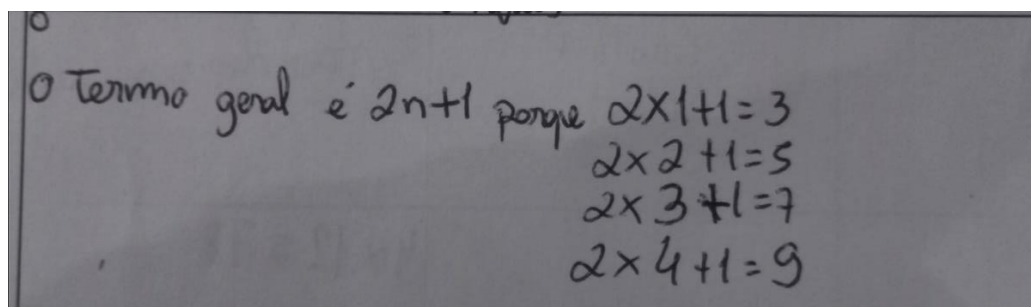 O Termo geral é 2n+1 porque 2×1+1=3
2×2+1=5
2×3+1=7
2×4+1=9